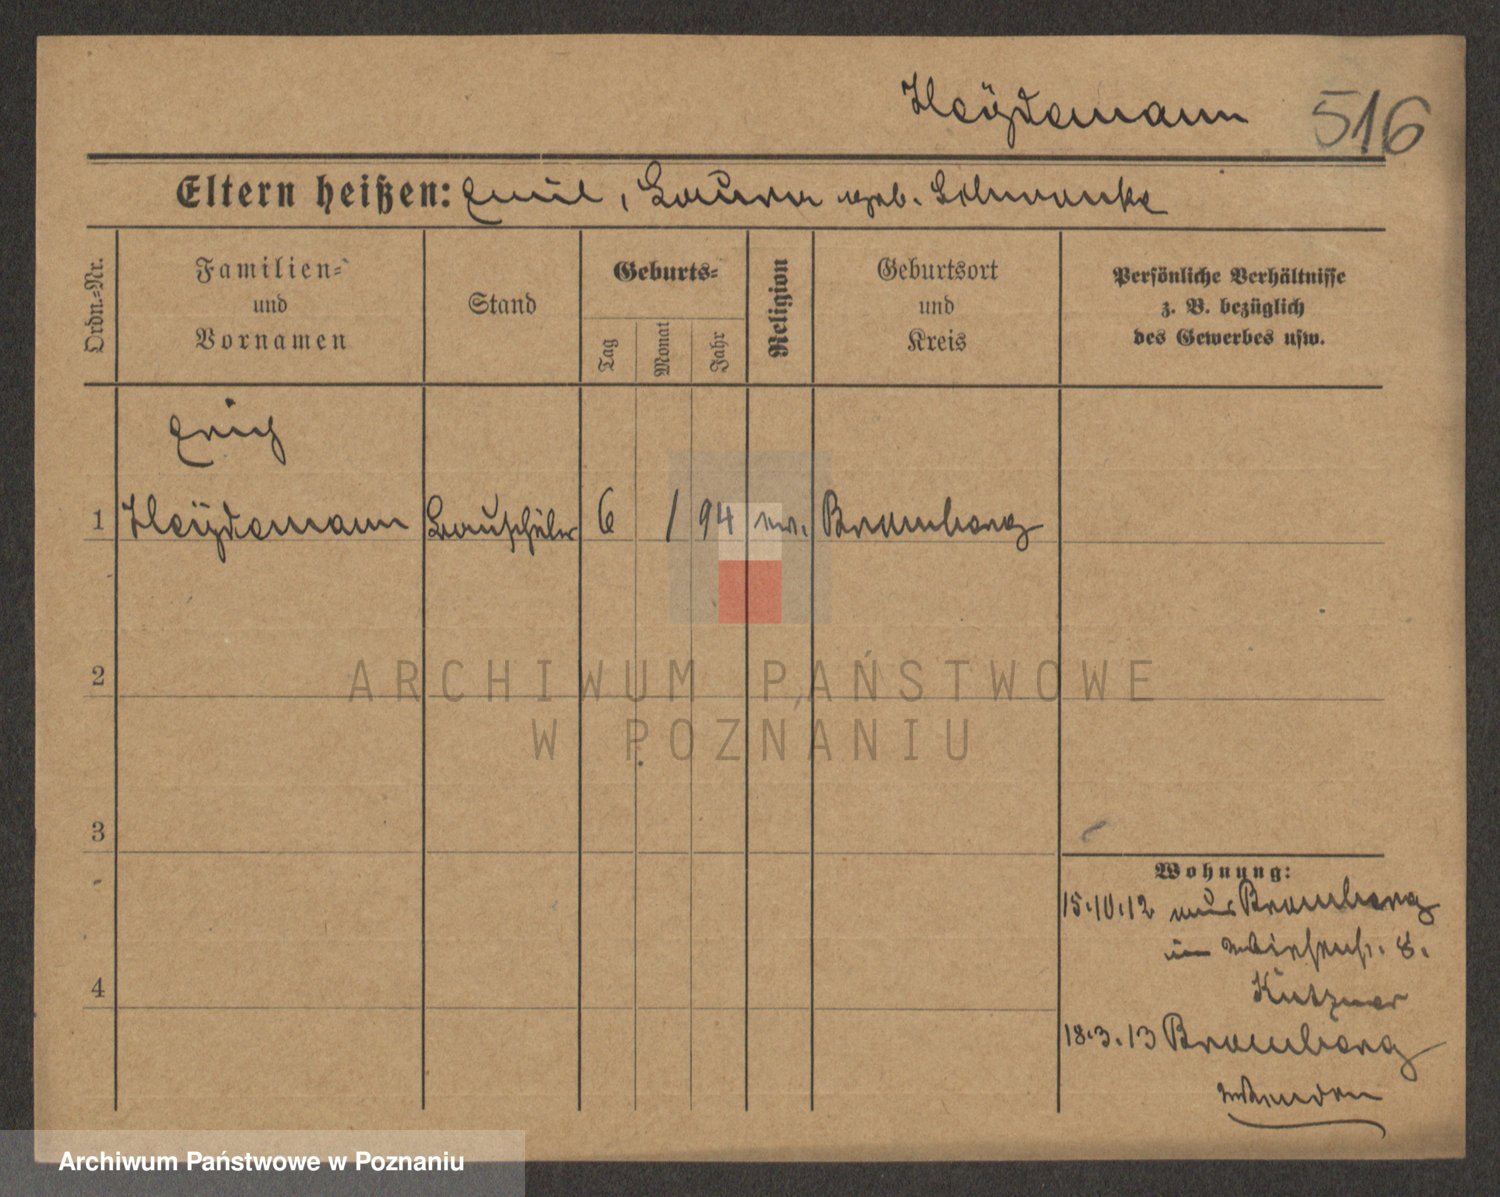 Heydemann 516
Eltern heißen: Emil, Laura geb. Schwanke
Ordn.=Nr.
Familien=
und
Vornamen
Stand
Geburts=
Tag
Monat
Jahr
Religion
Geburtsort
und
Kreis
Persönliche Verhältnisse
z. B. bezüglich
des Gewerbes usw.
Erich
1 Heÿdemann Bauschüler 6 1 94 ev. Bromberg
2
3
4
Wohnung:
15.10.12 aus Bromberg
in 8.
Kutzner
18.3.13 Bromberg
Wenden
ARCHIWUM PAŃSTWOWE
W POZNANIU
Archiwum Państwowe w Poznaniu